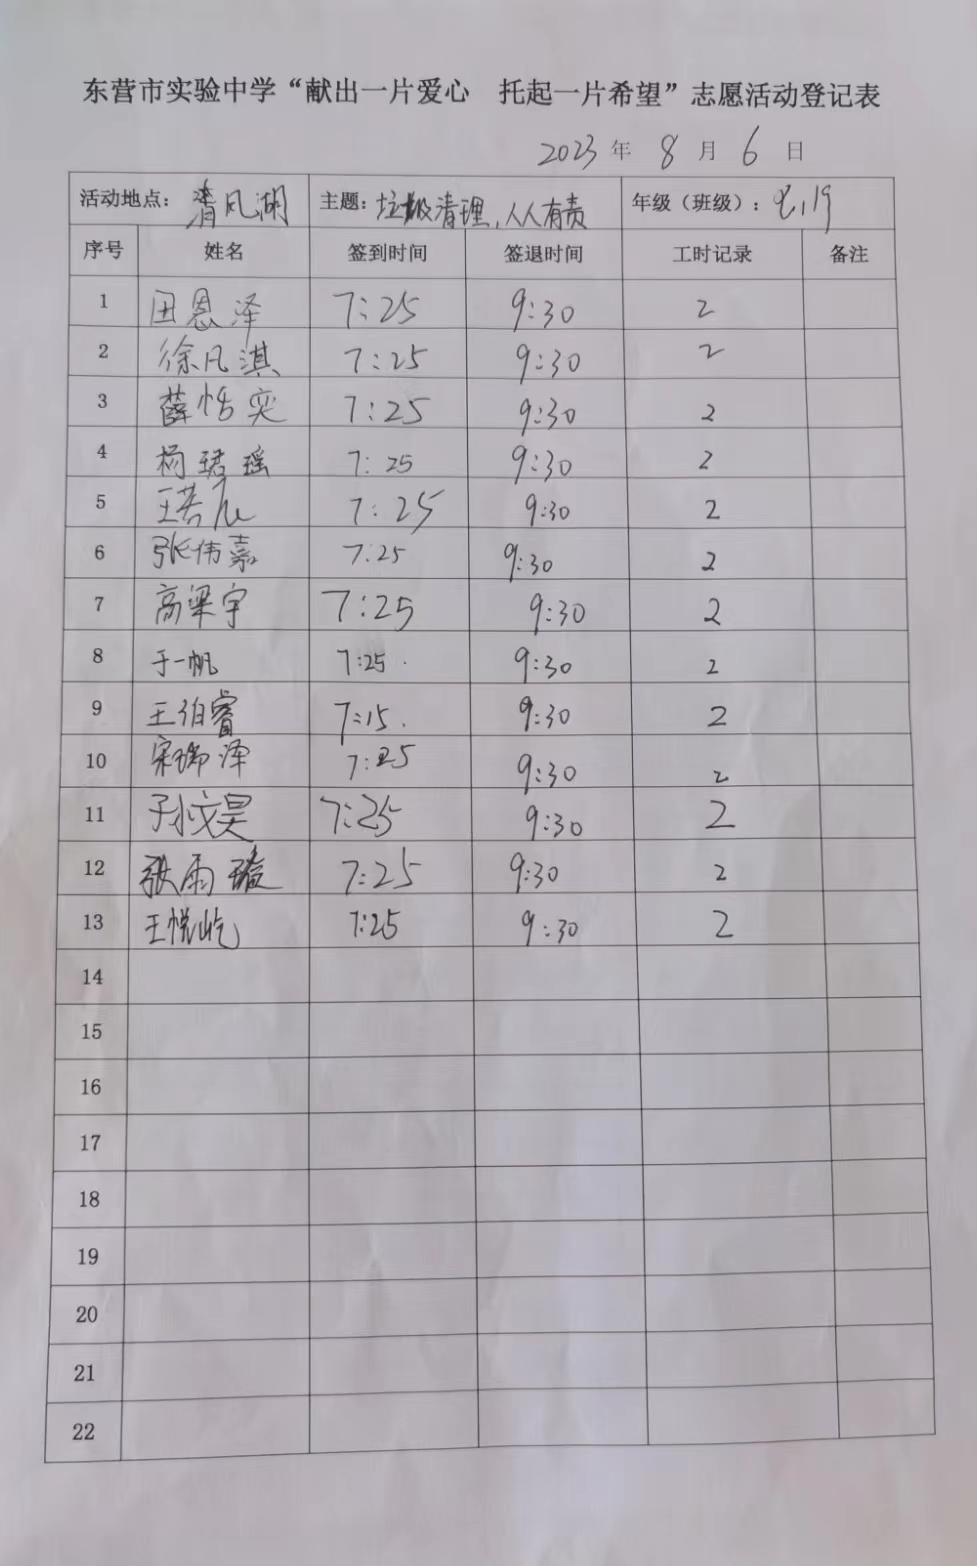 东营市实验中学“献出一片爱心 托起一片希望”志愿活动登记表
2023 年 8 月 6 日
活动地点：清风湖 主题：垃圾清理，人人有责 年级（班级）：七，19
序号 姓名 签到时间 签退时间 工时记录 备注
1 田恩泽 7:25 9:30 2
2 徐凡淇 7:25 9:30 2
3 薛恬奕 7:25 9:30 2
4 杨珺瑶 7:25 9:30 2
5 王若辰 7:25 9:30 2
6 张伟嘉 7:25 9:30 2
7 高梁宇 7:25 9:30 2
8 于一帆 7:25 9:30 2
9 王伯睿 7:15 9:30 2
10 宋瑞泽 7:25 9:30 2
11 孙文昊 7:25 9:30 2
12 张雨璇 7:25 9:30 2
13 王悦屹 7:25 9:30 2
14
15
16
17
18
19
20
21
22